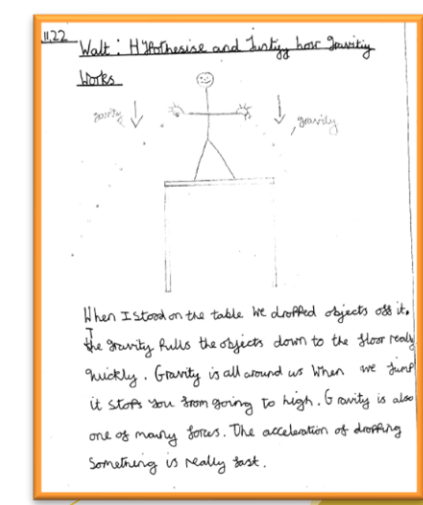 11.22
Walt: Hypothesise and Justify how gravitiy
Works
gravity
gravity
When I stood on the table we dropped objects off it.
The gravity pulls the objects down to the floor realy
quickly. Gravity is all around us when we jump
it stops you from going to high. Gravity is also
one of many forces. The acceleration of dropping
Something is really fast.